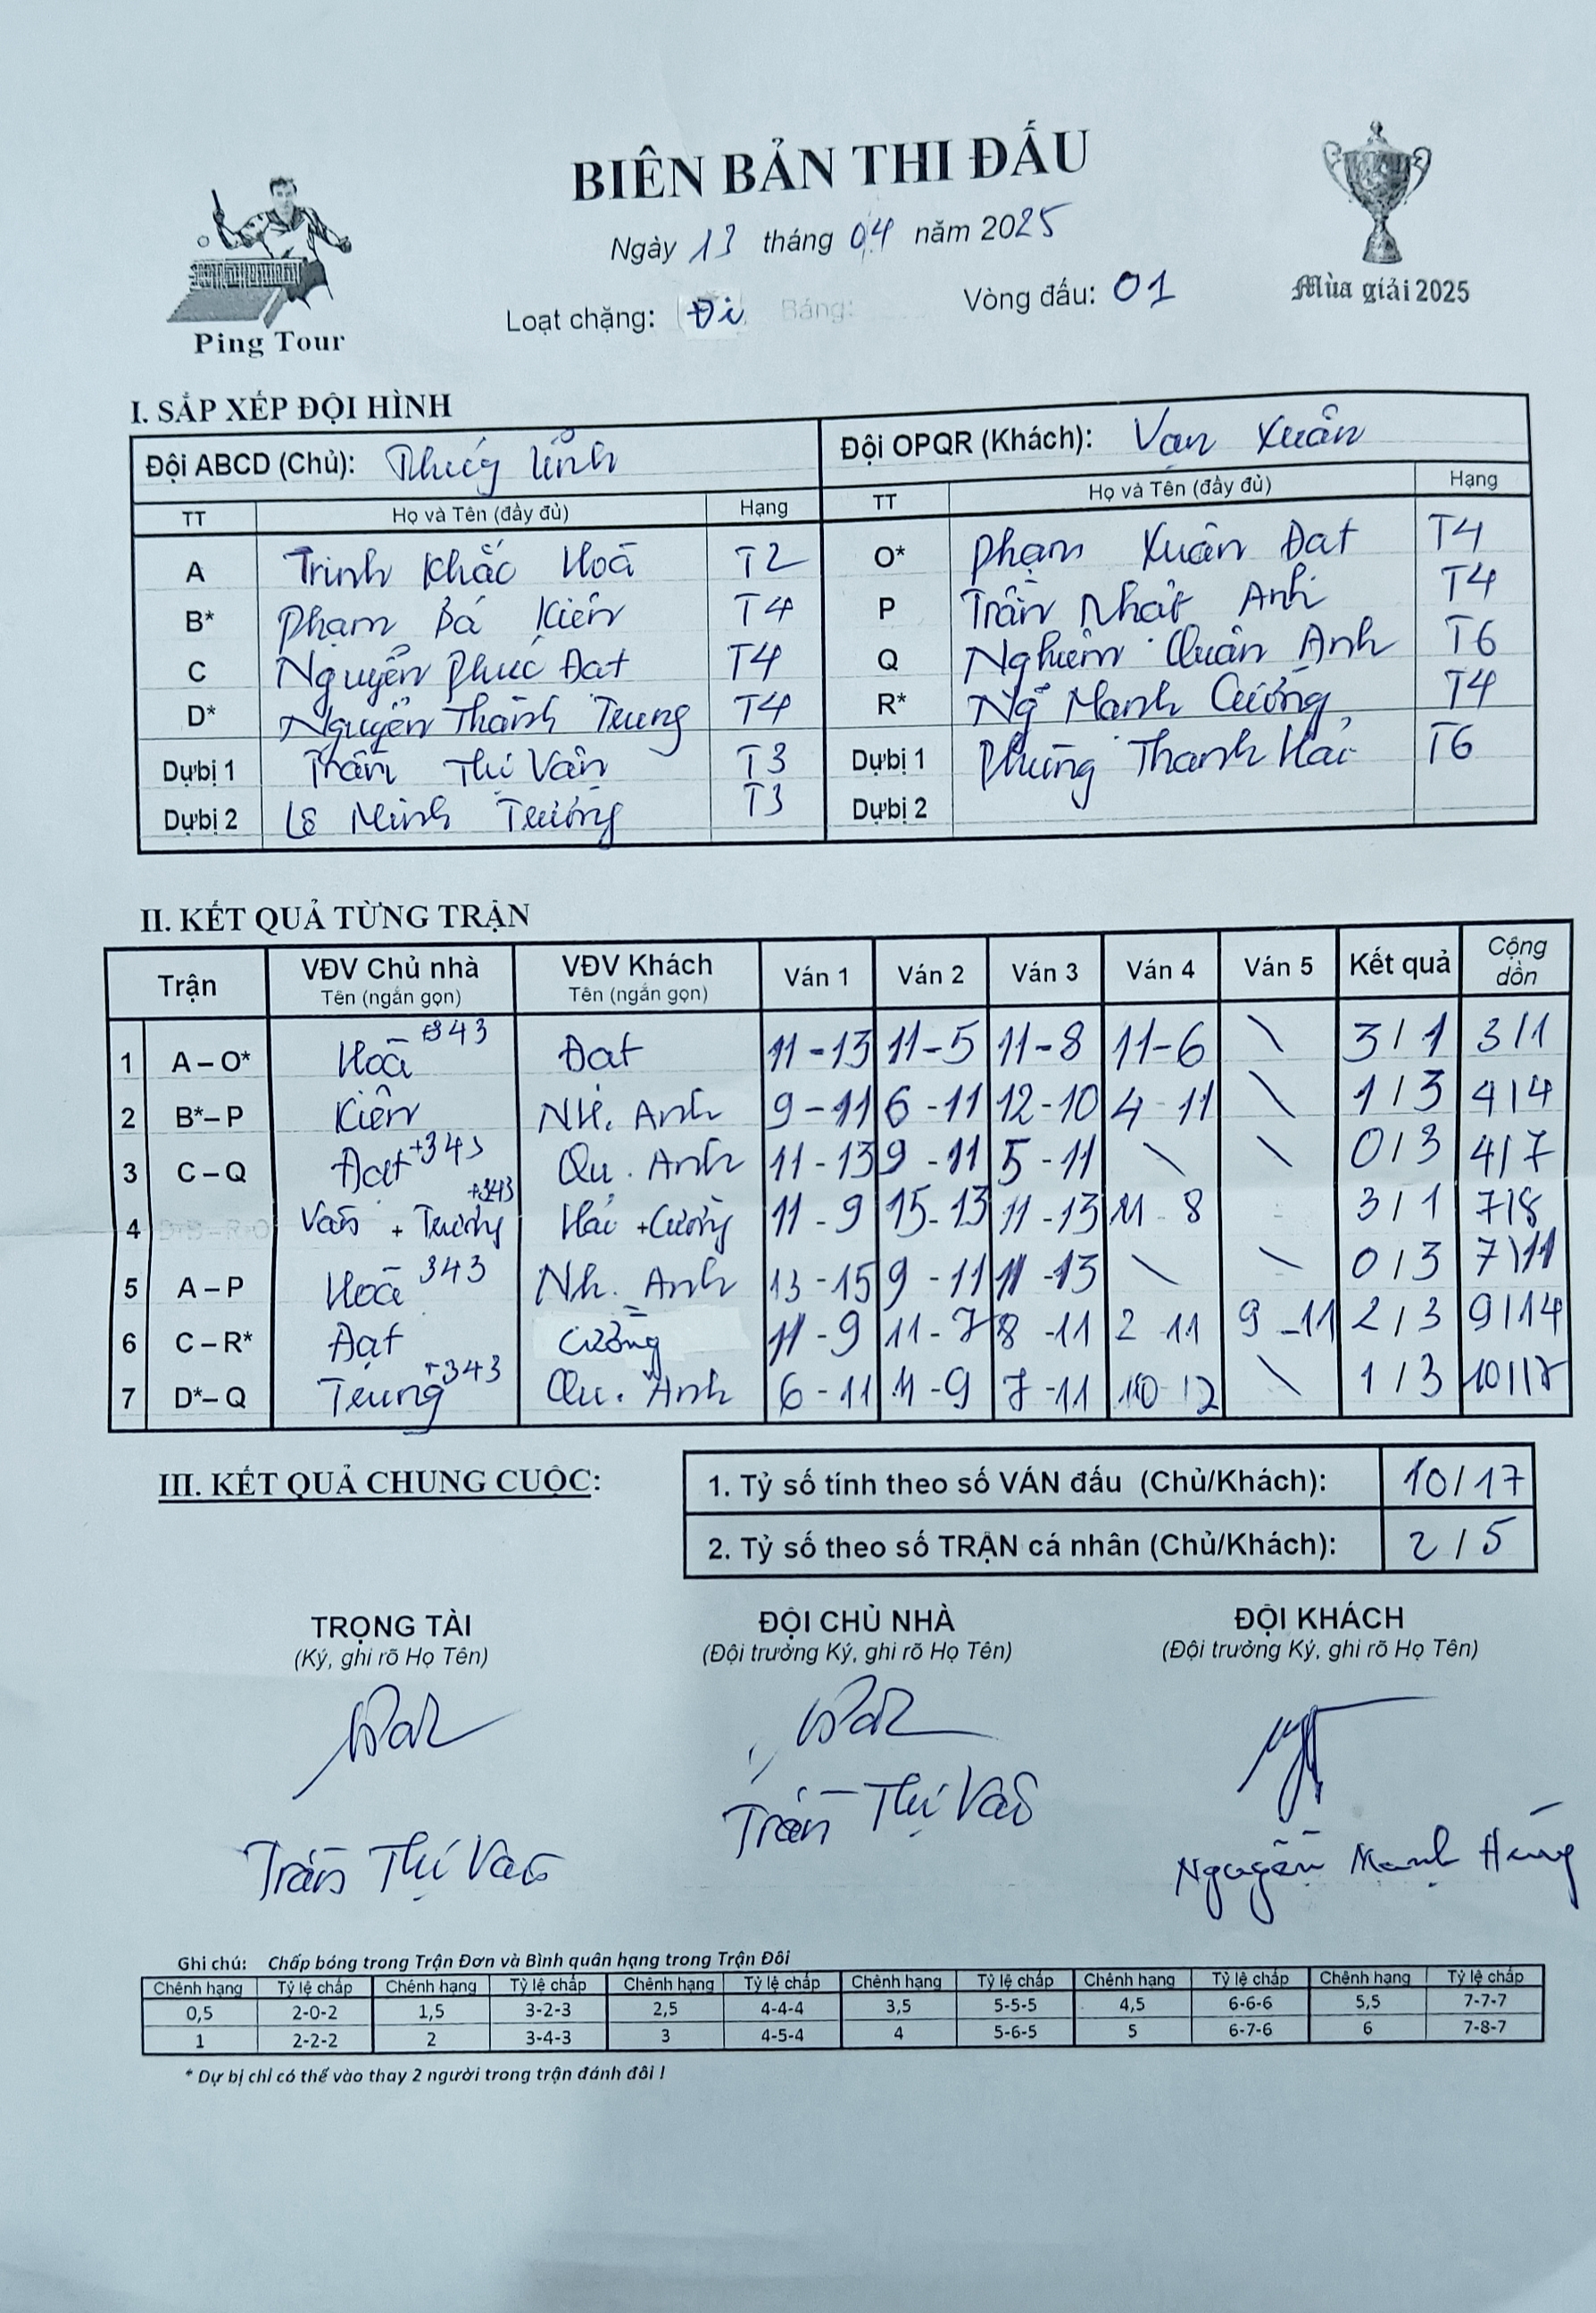 BIÊN BẢN THI ĐẤU
Ngày 13 tháng 04 năm 2025
Loạt chặng: Đi Bảng: Vòng đấu: 01
Ping Tour
Mùa giải 2025
I. SẮP XẾP ĐỘI HÌNH
Đội ABCD (Chủ): Đội OPQR (Khách): Vạn Xuân
TT Họ và Tên (đầy đủ) Hạng TT Họ và Tên (đầy đủ) Hạng
A Trịnh Khắc Hoà T2 O* Phạm Xuân Đạt T4
B* Phạm Bá Kiên T4 P Trần Nhật Anh T4
C Nguyễn Phúc Đạt T4 Q Nghiêm Quân Anh T6
D* Nguyễn Thành Trung T4 R* Ng Mạnh Cường T4
Dự bị 1 Trần Thị Vân T3 Dự bị 1 Phùng Thanh Hải T6
Dự bị 2 Lê Minh Trường T3 Dự bị 2
II. KẾT QUẢ TỪNG TRẬN
Trận VĐV Chủ nhà VĐV Khách Ván 1 Ván 2 Ván 3 Ván 4 Ván 5 Kết quả Cộng dồn
Tên (ngắn gọn) Tên (ngắn gọn)
1 A – O* Hoà +343 Đạt 11-13 11-5 11-8 11-6 \ 3/1 3/1
2 B* – P Kiên Nh. Anh 9-11 6-11 12-10 4-11 \ 1/3 4/4
3 C – Q Đạt +343 Qu. Anh 11-13 9-11 5-11 \ \ 0/3 4/7
4 Vân + Trường +343 Hải + Cường 11-9 15-13 11-13 11-8 3/1 7/8
5 A – P Hoà 343 Nh. Anh 13-15 9-11 11-13 \ \ 0/3 7/11
6 C – R* Đạt Cường 11-9 11-7 8-11 2-11 9-11 2/3 9/14
7 D* – Q Trung +343 Qu. Anh 6-11 11-9 7-11 10-12 \ 1/3 10/17
III. KẾT QUẢ CHUNG CUỘC:
1. Tỷ số tính theo số VÁN đấu (Chủ/Khách): 10/17
2. Tỷ số theo số TRẬN cá nhân (Chủ/Khách): 2/5
TRỌNG TÀI ĐỘI CHỦ NHÀ ĐỘI KHÁCH
(Ký, ghi rõ Họ Tên) (Đội trưởng Ký, ghi rõ Họ Tên) (Đội trưởng Ký, ghi rõ Họ Tên)
Trần Thị Vân Trần Thị Vân Nguyễn Mạnh Hùng
Ghi chú: Chấp bóng trong Trận Đơn và Bình quân hạng trong Trận Đôi
Chênh hạng Tỷ lệ chấp Chênh hạng Tỷ lệ chấp Chênh hạng Tỷ lệ chấp Chênh hạng Tỷ lệ chấp Chênh hạng Tỷ lệ chấp Chênh hạng Tỷ lệ chấp
0,5 2-0-2 1,5 3-2-3 2,5 4-4-4 3,5 5-5-5 4,5 6-6-6 5,5 7-7-7
1 2-2-2 2 3-4-3 3 4-5-4 4 5-6-5 5 6-7-6 6 7-8-7
* Dự bị chỉ có thể vào thay 2 người trong trận đánh đôi !